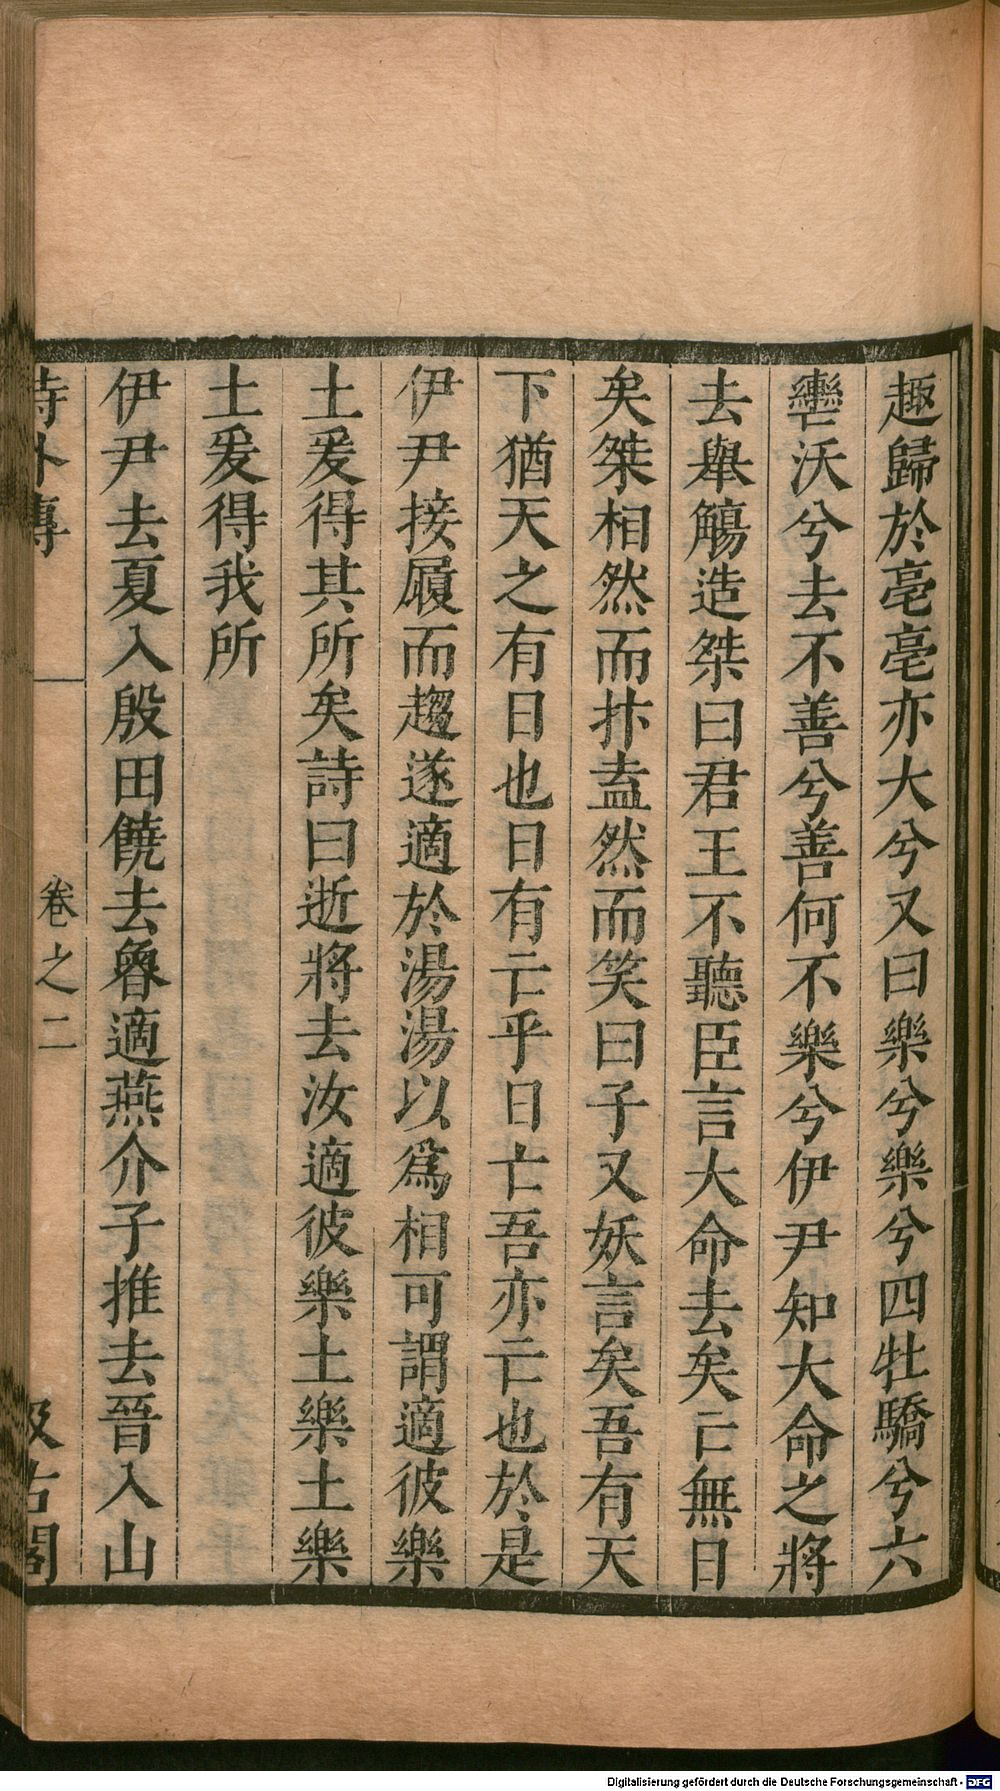 趣歸於亳亳亦大兮又曰樂兮樂兮四牡驕兮六
轡沃兮去不善兮善何不樂兮伊尹知大命之將
去舉觴造桀曰君王不聽臣言大命去矣亡無日
矣桀相然而抃盍然而笑曰子又妖言矣吾有天
下猶天之有日也日有亡乎日亡吾亦亡也於是
伊尹接履而趨遂適於湯湯以爲相可謂適彼樂
土爰得其所矣詩曰逝將去汝適彼樂土樂土樂
土爰得我所
伊尹去夏入殷田饒去魯適燕介子推去晉入山
詩外傳 卷之二 汲古閣
Digitalisierung gefördert durch die Deutsche Forschungsgemeinschaft - DFG